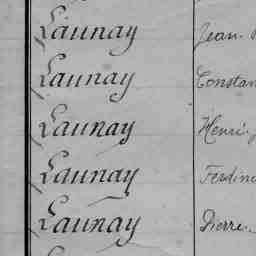 Launay Jean.
Launay Constan
Launay Henri.
Launay Ferdin
Launay Pierre.